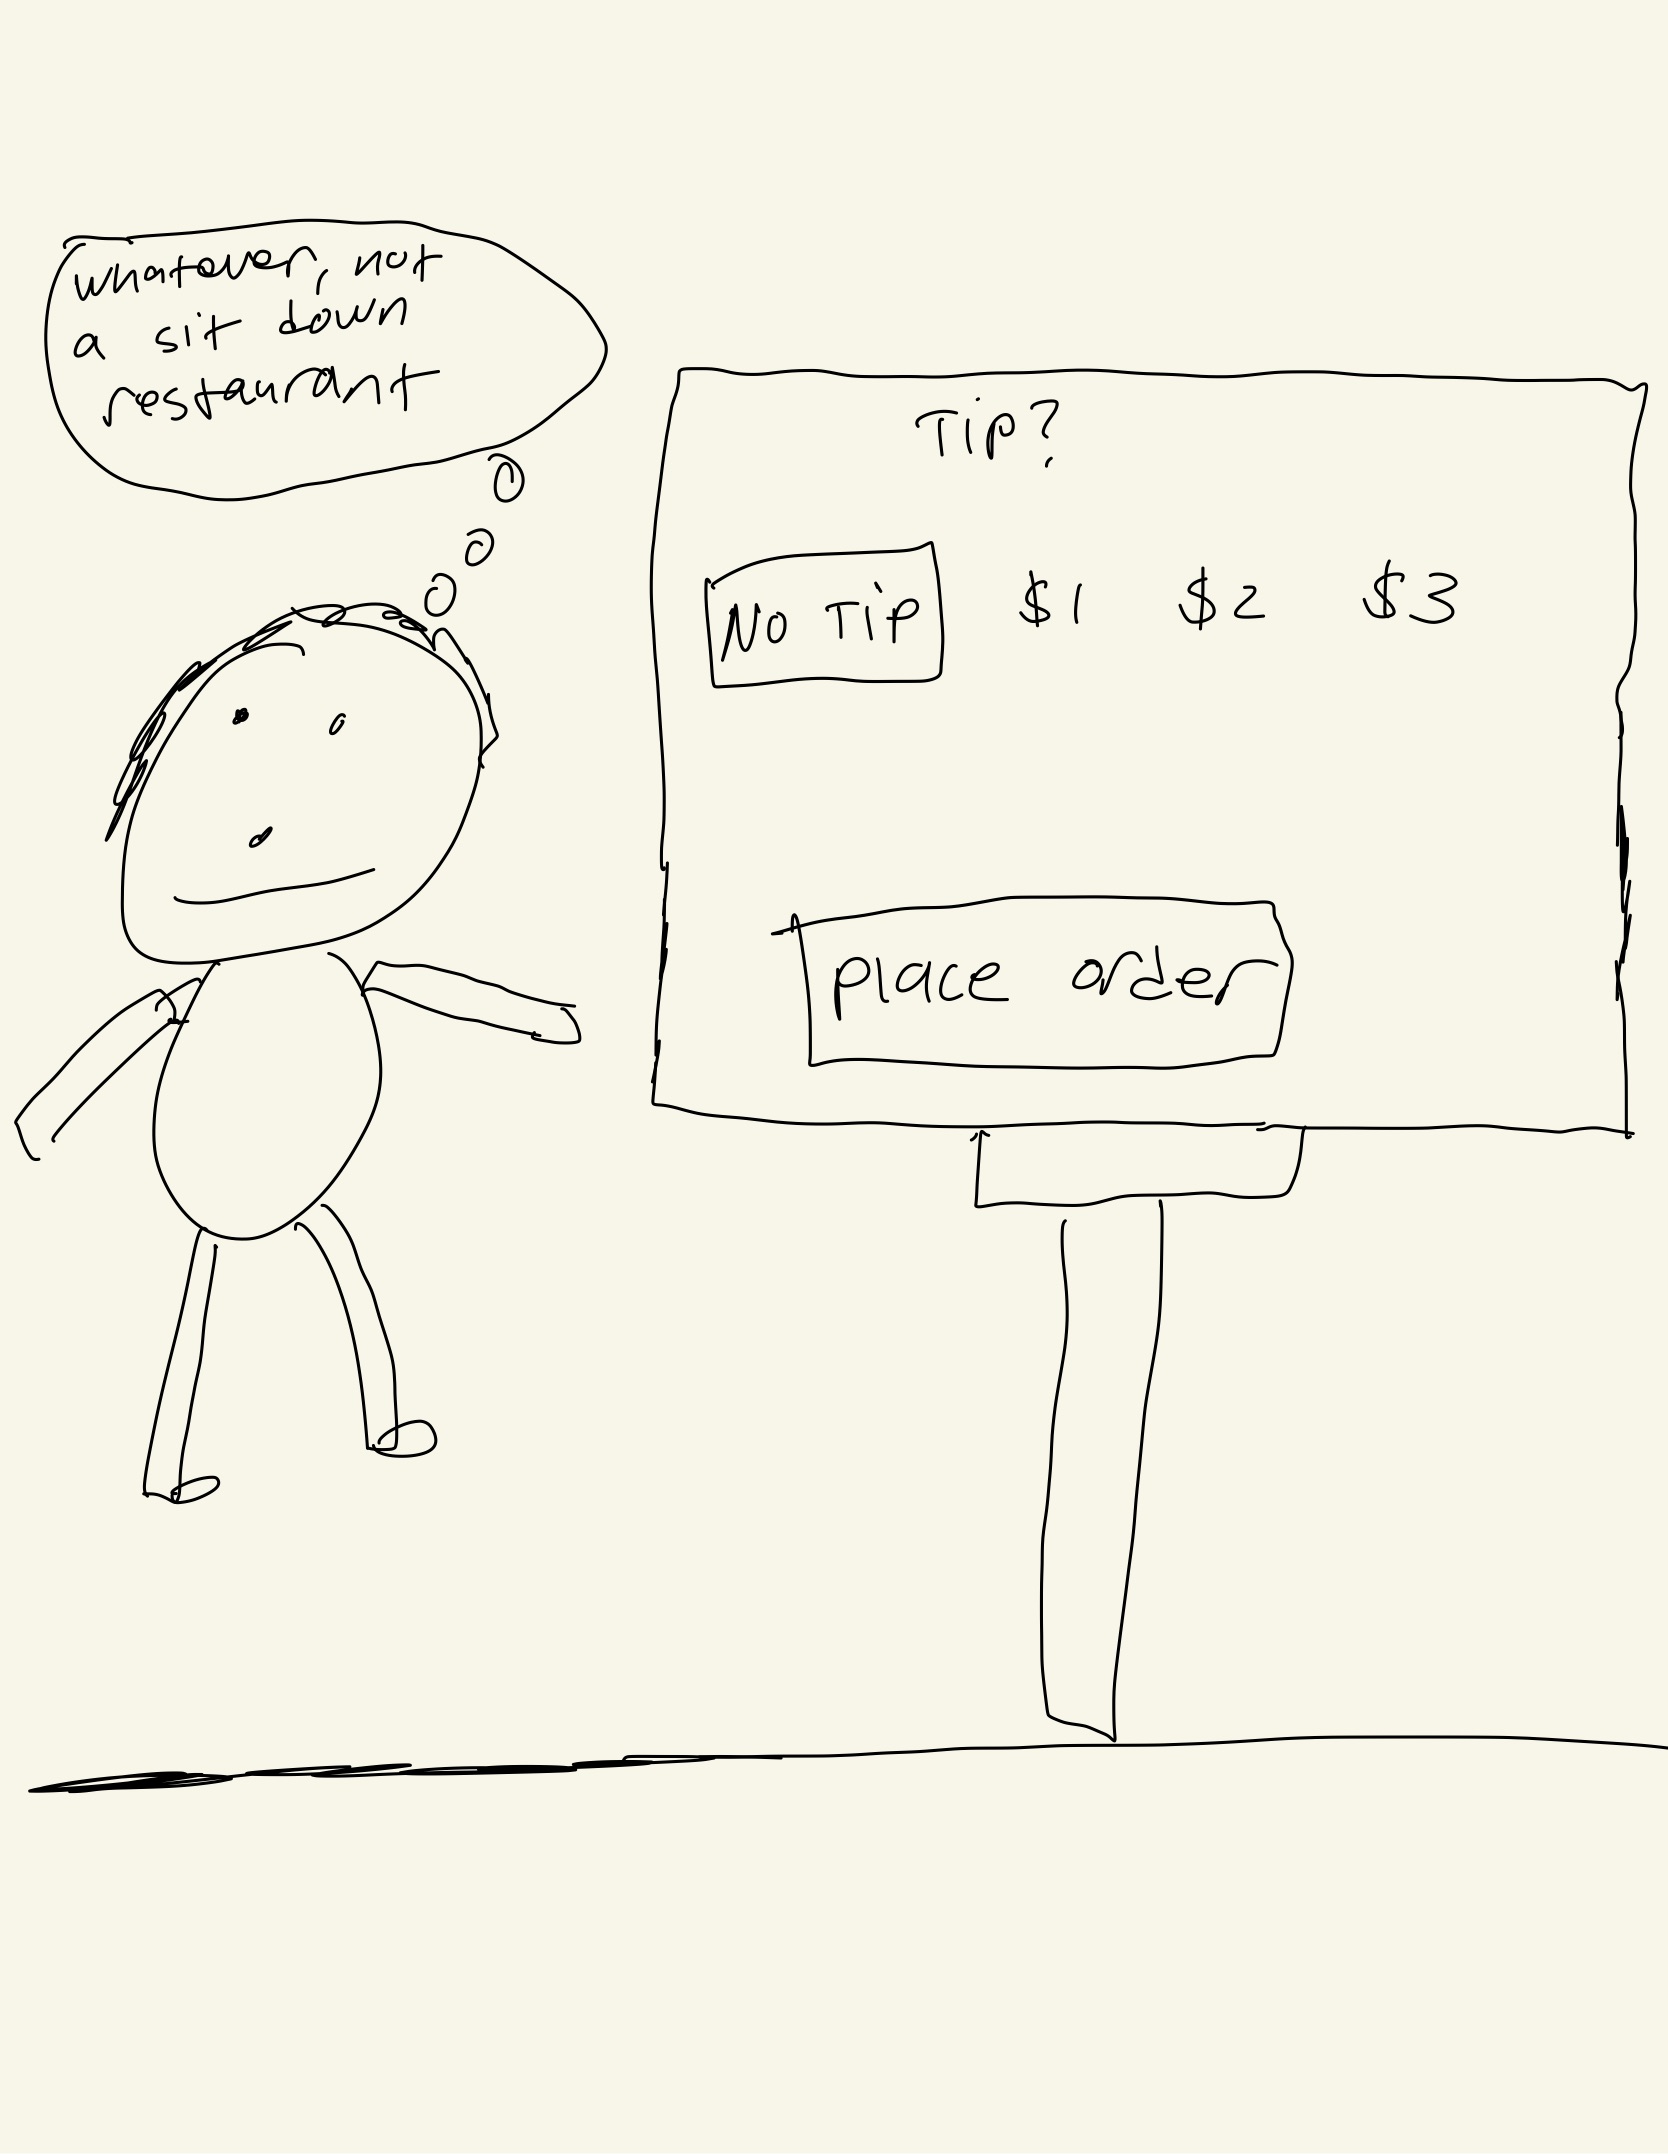 whatever, not
a sit down
restaurant
Tip?
No Tip $1 $2 $3
place order